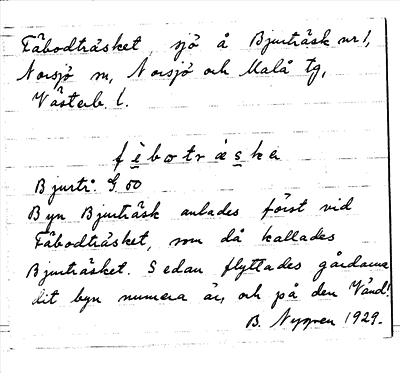 Fäbodträsket, sjö å Bjurträsk nr 1,
Norsjö sn, Norsjö och Malå tg,
Västerb. l.
fèbotrèska
Bjurtr. G.00
Byn Bjurträsk anlades först vid
Fäbodträsket, som då kallades
Bjurträsket. Sedan flyttades gårdarna
dit byn numera är, och på den
B. Nygren 1929.